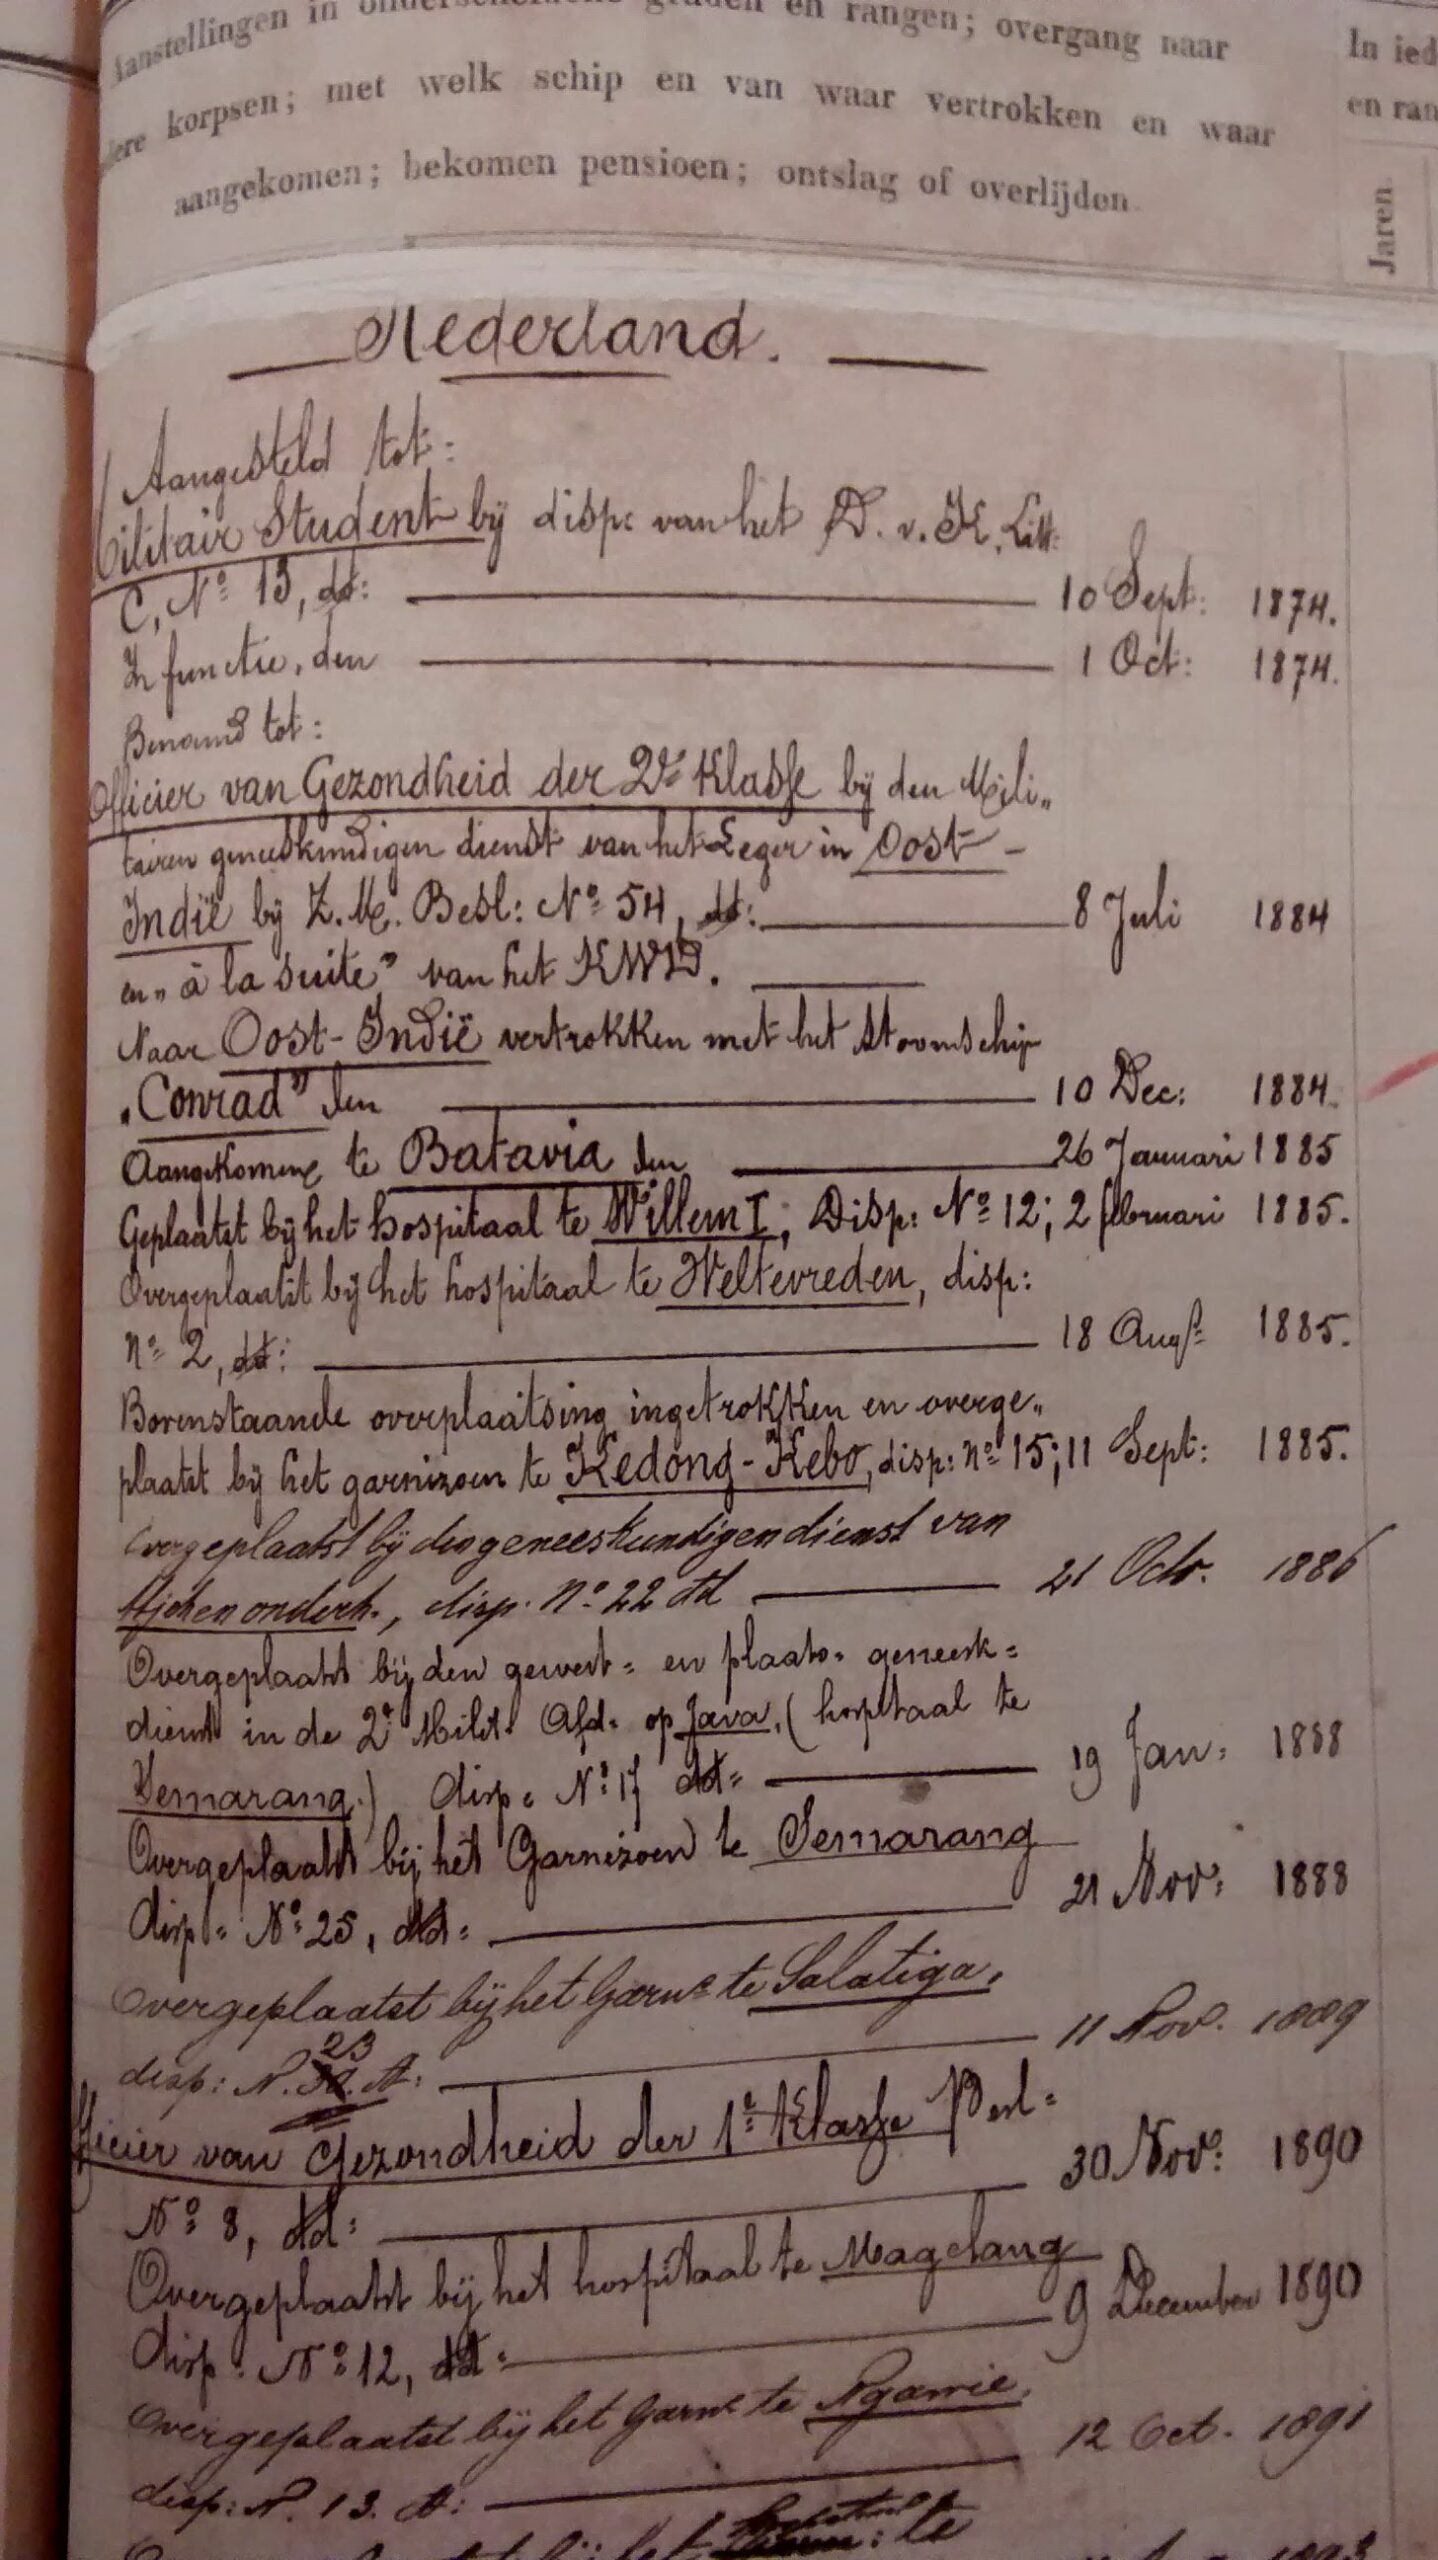 Aanstellingen in onderscheidene graden en rangen; overgang naar
korpsen; met welk schip en van waar vertrokken en waar
aangekomen; bekomen pensioen; ontslag of overlijden.
In ied
en ran
Jaren
Nederland.
Aangesteld tot:
Militair Student bij disp: van het D. v. K. Litt:
C, No 13, dd: 10 Sept: 1874.
In functie, den 1 Oct: 1874.
Benoemd tot:
Officier van Gezondheid der 2de Klasse bij den Mili„
tairen geneeskundigen dienst van het Leger in Oost-
Indië bij Z. M. Besl: No 54, dd: 8 Juli 1884
en „à la suite" van het KWD.
Naar Oost-Indië vertrokken met het stoomschip
„Conrad" den 10 Dec: 1884.
Aangekomen te Batavia den 26 Januari 1885
Geplaatst bij het hospitaal te Willem I, Disp: No 12; 2 februari 1885.
Overgeplaatst bij het hospitaal te Weltevreden, disp:
no 2, dd: 18 Augs 1885.
Bovenstaande overplaatsing ingetrokken en overge„
plaatst bij het garnizoen te Kedong-Kebo, disp: no 15; 11 Sept: 1885.
Overgeplaatst bij den geneeskundigen dienst van
Atjeh en onderh., disp. No 22 dd 21 Octr. 1886
Overgeplaatst bij den gewest= en plaats= geneesk=
dienst in de 2e Milit= Afd= op Java, (hospitaal te
Semarang.) disp= No 17 dd= 19 Jan= 1888
Overgeplaatst bij het Garnizoen te Semarang
disp= No 25, dd= 21 Nov= 1888
Overgeplaatst bij het Garnz te Salatiga,
disp: N. 23 d: 11 Nov. 1889
Officier van Gezondheid der 1e Klasse Besl=
No 8, dd= 30 Nov= 1890
Overgeplaatst bij het hospitaal te Magelang
disp= No 12, dd= 9 December 1890
Overgeplaatst bij het Garnz te Ngawie,
disp: N. 13. d: 12 Oct. 1891
bij het te 1893